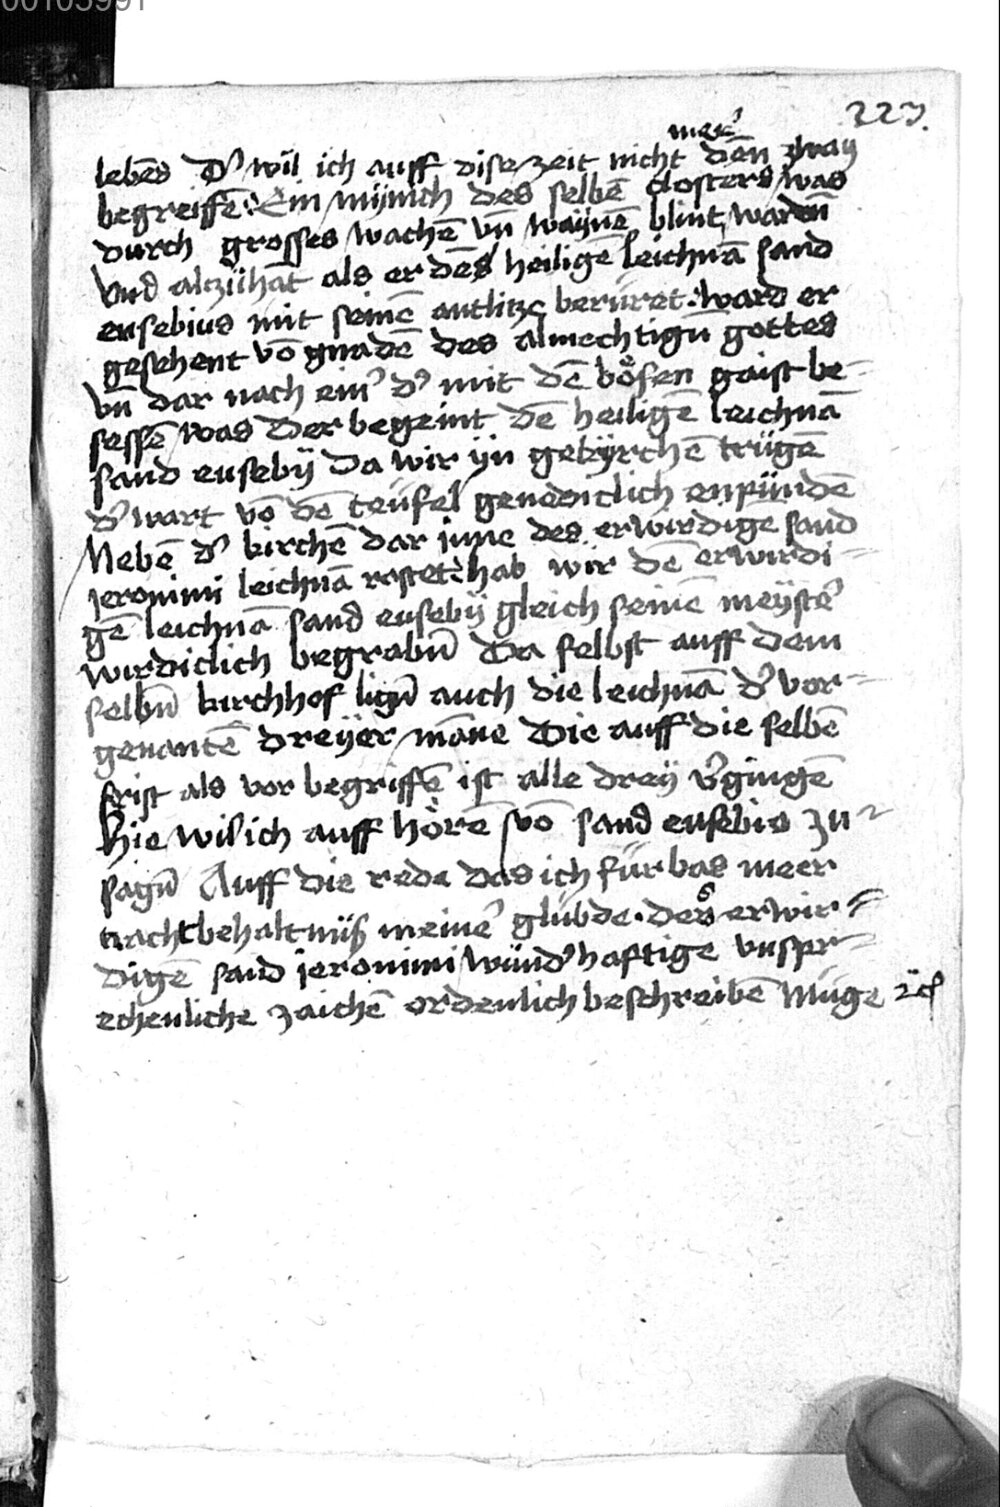 00103991
223.
mer᷒
lebēs D᷒ wil ich auff dise zeit nicht dēn zway
begreiffē: Ein mÿnich des selbē closters was
durch grosses wachē vn̄ waÿnē blint wardn̄
Vnd alczühāt als er des heiligē leichnā sand
eusebius mit seinē antlitze berüret. ward er
gesehent vō gnadē des almechtign̄ gottes
vn̄ dar nach ein᷒ d᷒ mit dē bösen gaist be=
sessē was Der begeint dē heiligē leichnā
sand eusebÿ Da wir ÿn gekÿrchē trügē
d᷒ wart vō dē teüfel genediclich enpündē
Nebē d᷒ kirchē dar jnne des erwirdigē sand
jeronimi leichnā rastet: hab wir dē erwirdi=
gē leichnā sand eusebÿ gleich seinē meÿst᷒
wirdiclich begrabn̄ Da selbst auff dem
selbn̄ kirchhof lign̄ auch die leichnā d᷒ vor=
genantē dreÿer māne Die auff die selbē
frist als vor begriffē ist alle dreÿ v᷒gingē
hie wil ich auff hörē vō sand eusebio zu=
sagn̄ Auff die rede das ich für bas meer
nach behaltniß meiner glübde. des erwir=
digē sand jeronimi wund᷒haftige vnspr=
echenliche zaichē ordenlich beschreibē müge ꝛc